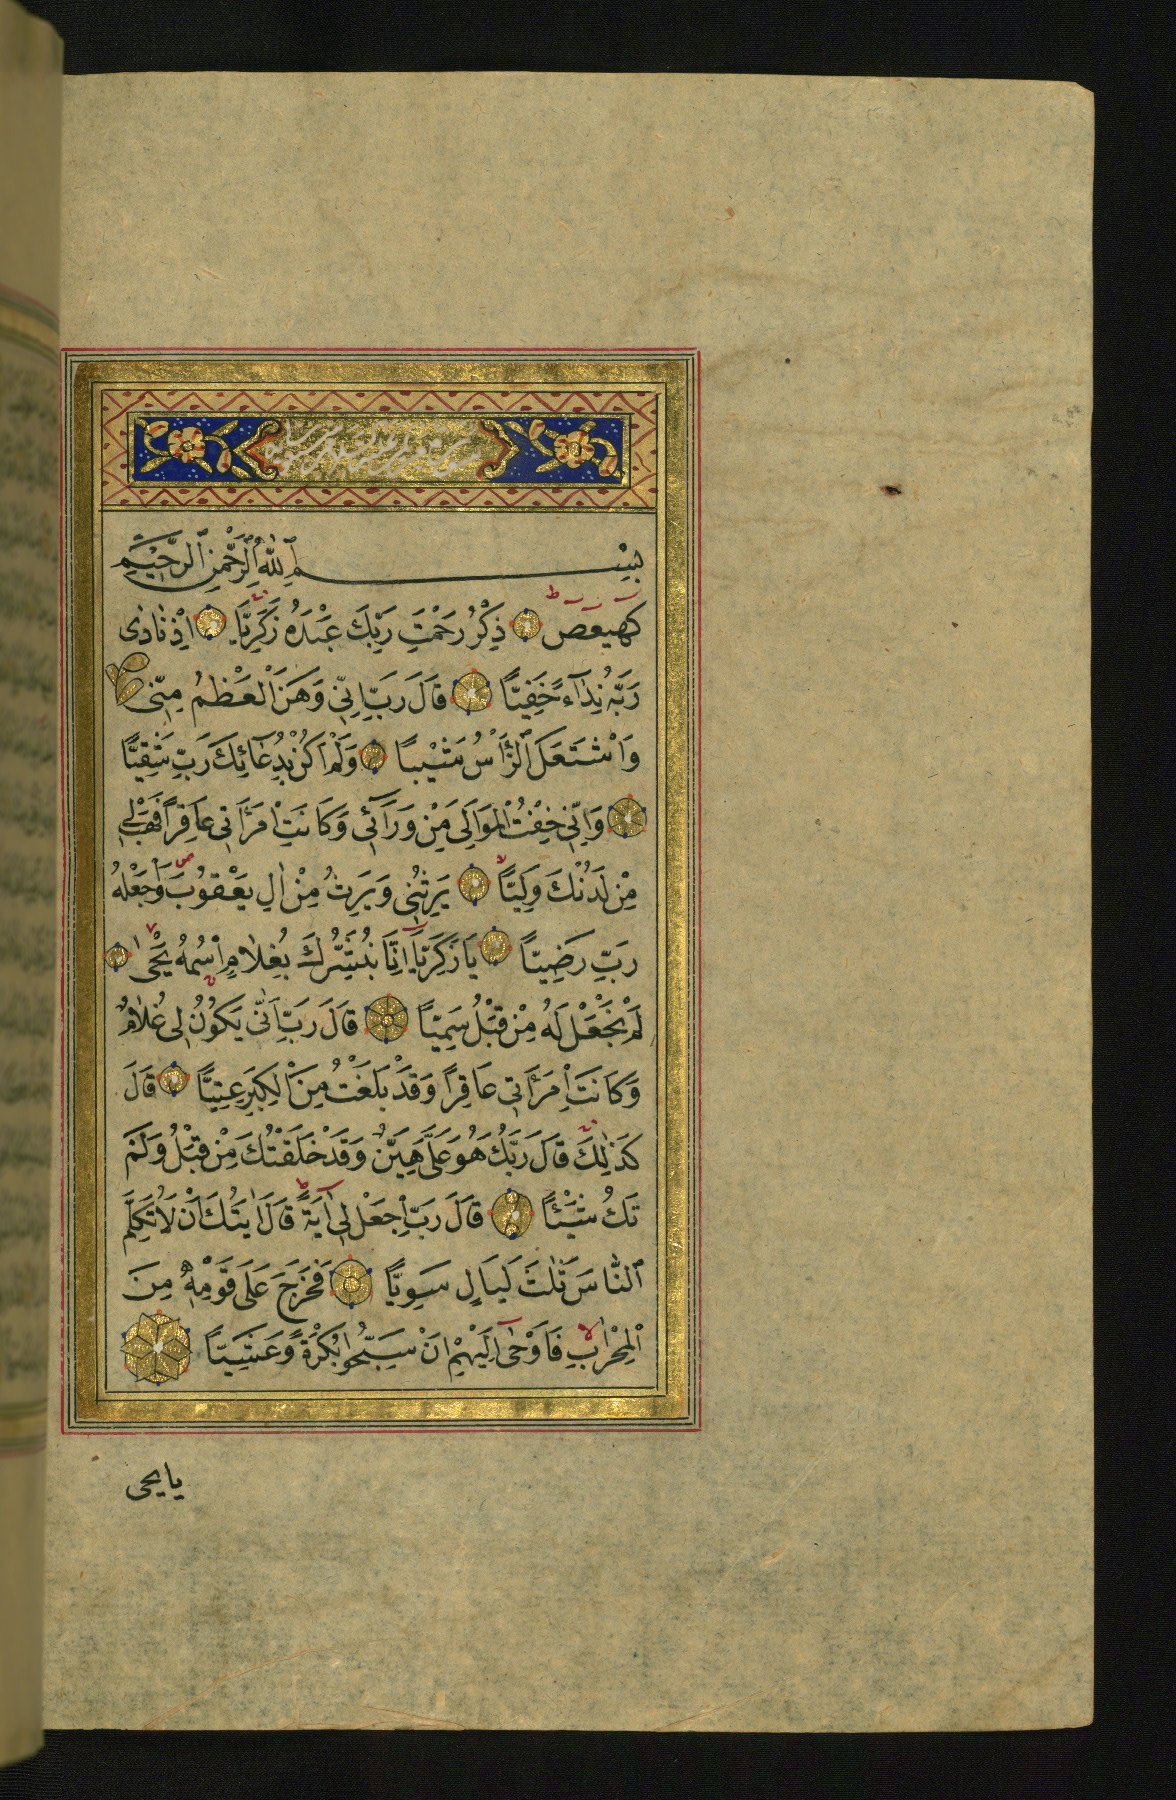 بِسْمِ ٱللّٰهِ ٱلرَّحْمٰنِ ٱلرَّحِيْمِ
كهيعص ذِكْرُ رَحْمَتِ رَبِّكَ عَبْدَهُ زَكَرِيَّا اِذْ نَادٰى
رَبَّهُ نِدَآءً خَفِيًّا قَالَ رَبِّ اِنِّى وَهَنَ الْعَظْمُ مِنّى
وَاشْتَعَلَ ٱلرَّأْسُ شَيْبًا وَلَمْ اَكُنْ بِدُعَآئِكَ رَبِّ شَقِيًّا
وَاِنِّى خِفْتُ الْمَوَالِىَ مِنْ وَرَآئِى وَكَانَتِ امْرَاَتِى عَاقِرًا فَهَبْ لِى
مِنْ لَدُنْكَ وَلِيًّا يَرِثُنِى وَيَرِثُ مِنْ اٰلِ يَعْقُوبَ وَاجْعَلْهُ
رَبِّ رَضِيًّا يَا زَكَرِيَّا اِنَّا نُبَشِّرُكَ بِغُلَامٍ اسْمُهُ يَحْيٰى
لَمْ نَجْعَلْ لَهُ مِنْ قَبْلُ سَمِيًّا قَالَ رَبِّ اَنّٰى يَكُوْنُ لِى غُلَامٌ
وَكَانَتِ امْرَاَتِى عَاقِرًا وَقَدْ بَلَغْتُ مِنَ الْكِبَرِ عِتِيًّا قَالَ
كَذٰلِكَ قَالَ رَبُّكَ هُوَ عَلَىَّ هَيِّنٌ وَقَدْ خَلَقْتُكَ مِنْ قَبْلُ وَلَمْ
تَكُ شَيْئًا قَالَ رَبِّ اجْعَلْ لِى اٰيَةً قَالَ اٰيَتُكَ اَنْ لَا تُكَلِّمَ
ٱلنَّاسَ ثَلٰثَ لَيَالٍ سَوِيًّا فَخَرَجَ عَلٰى قَوْمِهِ مِنَ
الْمِحْرَابِ فَاَوْحٰى اِلَيْهِمْ اَنْ سَبِّحُوا بُكْرَةً وَعَشِيًّا
يا يحى